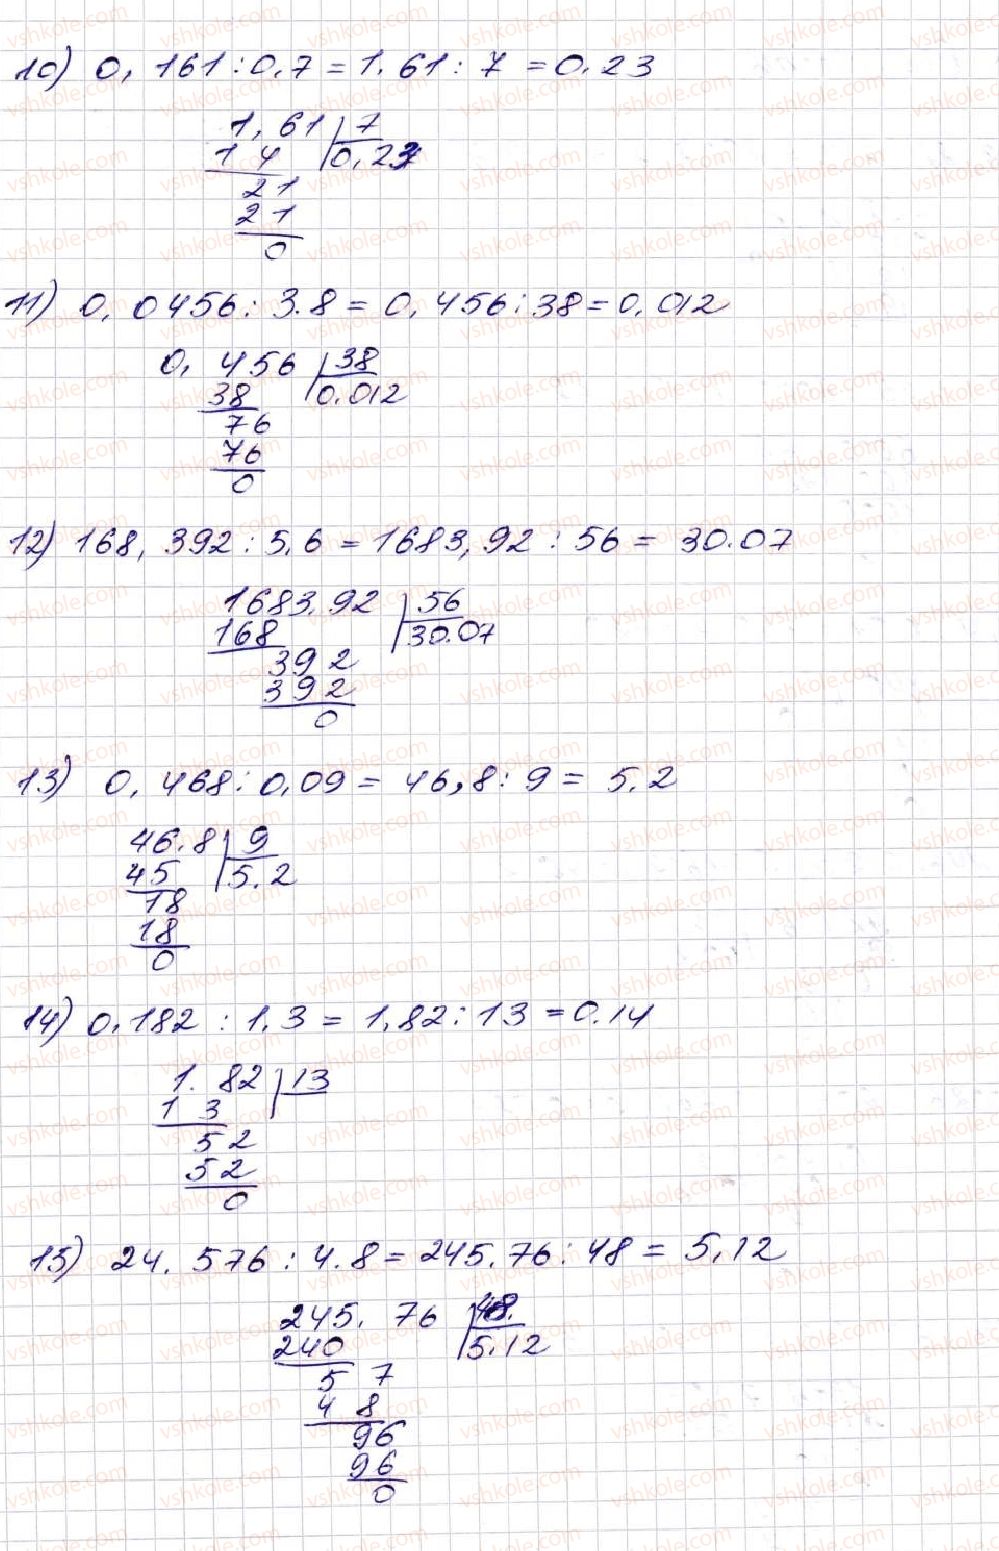 10) 0,161 : 0.7 = 1.61 : 7 = 0.23
1,61 | 7
1 4 | 0,23
21
21
0
11) 0,0456 : 3.8 = 0,456 : 38 = 0,012
0,456 | 38
38 | 0.012
76
76
0
12) 168,392 : 5,6 = 1683,92 : 56 = 30.07
1683.92 | 56
168 | 30.07
392
392
0
13) 0,468 : 0,09 = 46,8 : 9 = 5.2
46.8 | 9
45 | 5.2
18
18
0
14) 0,182 : 1,3 = 1,82 : 13 = 0.14
1.82 | 13
1 3
52
52
0
15) 24.576 : 4.8 = 245.76 : 48 = 5,12
245.76 | 48
240 | 5.12
5 7
4 8
96
96
0
vshkole.com